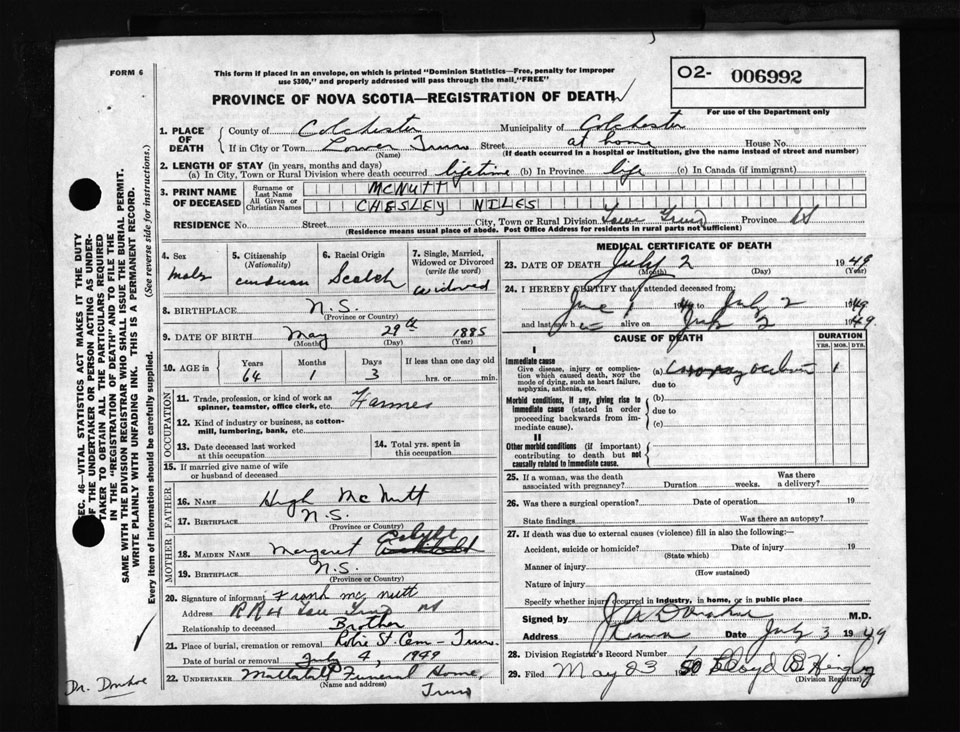 FORM 6
This form if placed in an envelope, on which is printed "Dominion Statistics—Free, penalty for improper
use $300," and properly addressed will pass through the mail "FREE"
O2- 006992
For use of the Department only
PROVINCE OF NOVA SCOTIA—REGISTRATION OF DEATH
1. PLACE OF DEATH
County of Colchester Municipality of Colchester
If in City or Town Lower Truro Street at home House No.
(Name) (If death occurred in a hospital or institution, give the name instead of street and number)
2. LENGTH OF STAY (in years, months and days)
(a) In City, Town or Rural Division where death occurred lifetime (b) In Province life (c) In Canada (if immigrant)
3. PRINT NAME OF DECEASED
Surname or Last Name MCNUTT
All Given or Christian Names CHESLEY NILES
RESIDENCE No. Street City, Town or Rural Division Truro Province NS
(Residence means usual place of abode. Post Office Address for residents in rural parts not sufficient)
4. Sex
Male
5. Citizenship
(Nationality)
6. Racial Origin
Scotch
7. Single, Married,
Widowed or Divorced
(write the word)
widowed
8. BIRTHPLACE N.S.
(Province or Country)
9. DATE OF BIRTH May 29th 1885
(Month) (Day) (Year)
10. AGE in Years Months Days If less than one day old
64 1 3 hrs. or min.
OCCUPATION
11. Trade, profession, or kind of work as
spinner, teamster, office clerk, etc. Farmer
12. Kind of industry or business, as cotton-
mill, lumbering, bank, etc.
13. Date deceased last worked
at this occupation
14. Total yrs. spent in
this occupation
15. If married give name of wife
or husband of deceased
FATHER
16. NAME Hugh McNutt
17. BIRTHPLACE N.S.
(Province or Country)
MOTHER
18. MAIDEN NAME Margaret
19. BIRTHPLACE N.S.
(Province or Country)
20. Signature of informant Frank McNutt
Address RR4 Truro NS
Relationship to deceased Brother
21. Place of burial, cremation or removal Robie St. Cem - Truro
Date of burial or removal July 4, 1949
22. UNDERTAKER Mattatall Funeral Home,
(Name and address) Truro
MEDICAL CERTIFICATE OF DEATH
23. DATE OF DEATH July 2 1949
(Month) (Day) (Year)
24. I HEREBY CERTIFY that I attended deceased from:
June 1 to July 2 1949
and last saw h alive on July 2 1949
CAUSE OF DEATH
DURATION
YRS. MOS. DYS.
I
Immediate cause
Give disease, injury or complica-
tion which caused death, NOT the
mode of dying, such as heart failure,
asphyxia, asthenia, etc.
(a) Coronary occlusion 1
due to
Morbid conditions, if any, giving rise to
immediate cause (stated in order
proceeding backwards from im-
mediate cause).
(b)
due to
(c)
II
Other morbid conditions (if important)
contributing to death but not
causally related to immediate cause.
25. If a woman, was the death
associated with pregnancy? Duration weeks. Was there
a delivery?
26. Was there a surgical operation? Date of operation 19
State findings Was there an autopsy?
27. If death was due to external causes (violence) fill in also the following:—
Accident, suicide or homicide? Date of injury 19
(State which)
Manner of injury
(How sustained)
Nature of injury
Specify whether injury occurred in industry, in home, or in public place
Signed by M.D.
Address Truro Date July 3 1949
28. Division Registrar's Record Number
29. Filed May 23 50 Lloyd B.
(Division Registrar)
SEC. 46—VITAL STATISTICS ACT MAKES IT THE DUTY
OF THE UNDERTAKER OR PERSON ACTING AS UNDER-
TAKER TO OBTAIN ALL THE PARTICULARS REQUIRED
IN THE "REGISTRATION OF DEATH" AND TO FILE THE
SAME WITH THE DIVISION REGISTRAR WHO SHALL ISSUE THE BURIAL PERMIT.
WRITE PLAINLY WITH UNFADING INK. THIS IS A PERMANENT RECORD.
Every item of information should be carefully supplied. (See reverse side for instructions.)
Dr. Donhoe